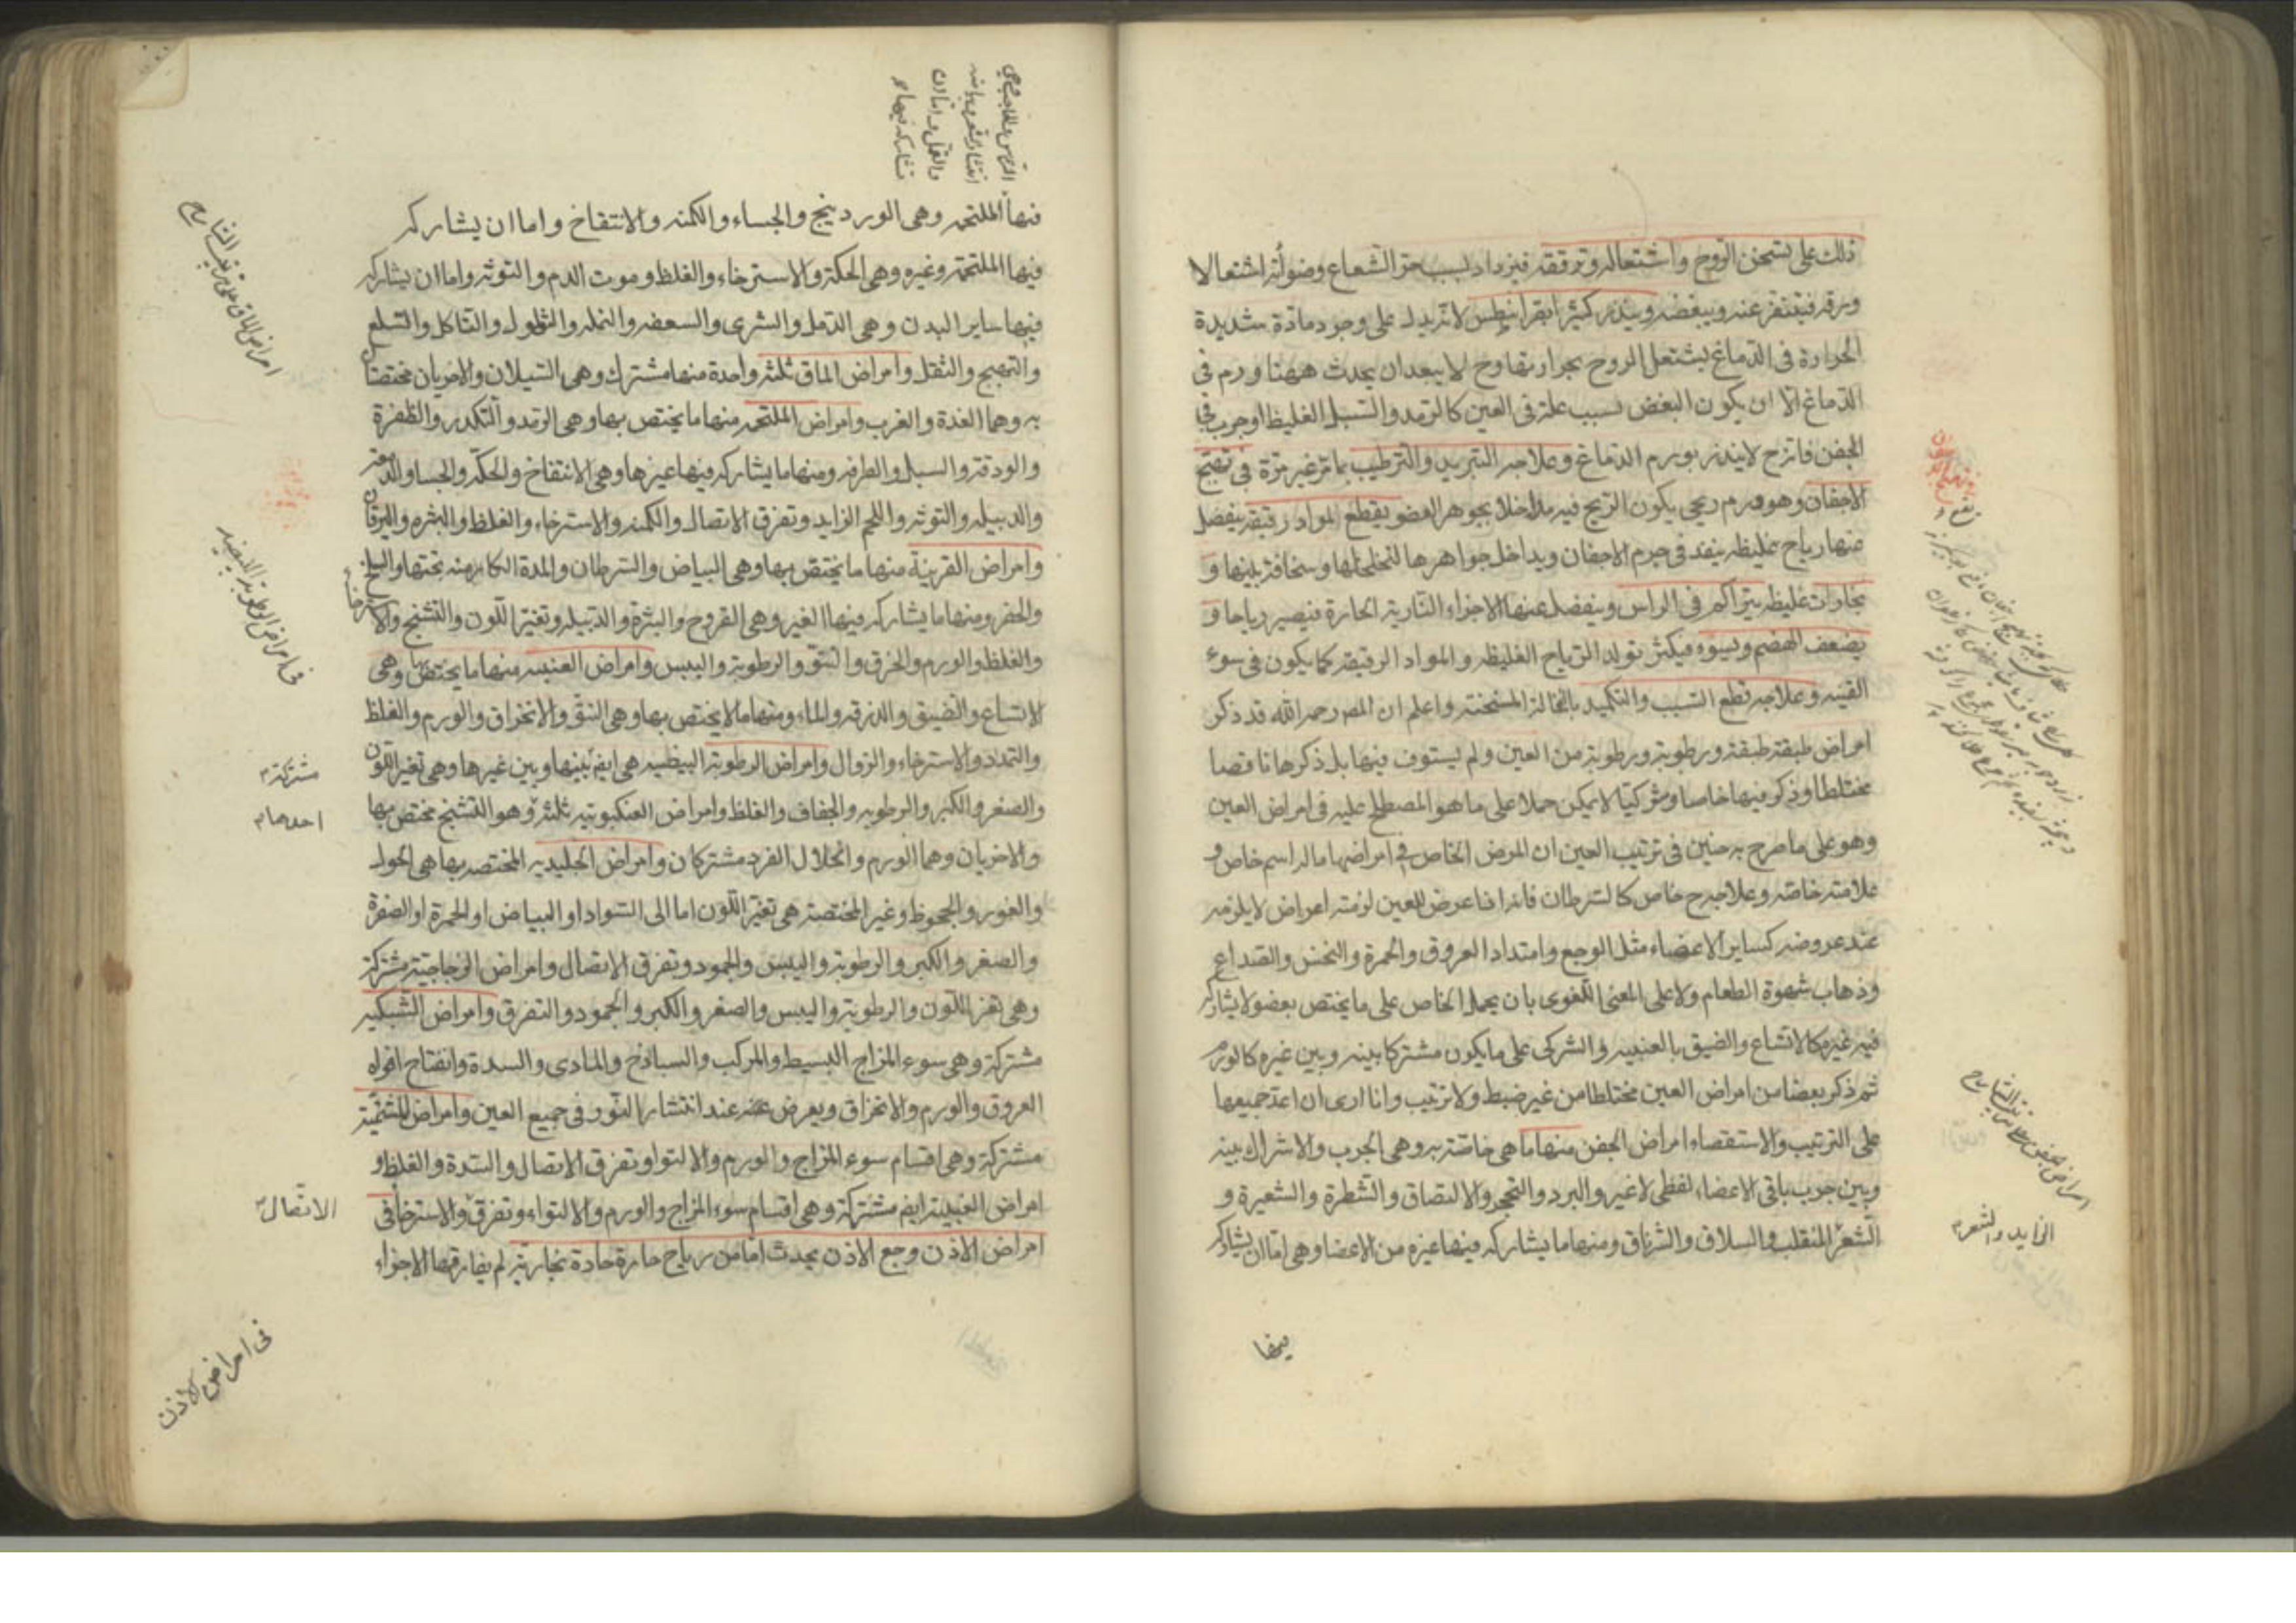 ذلك على تسخن الروح واشتعاله وترققه فيزداد بسبب حر الشعاع وضوئه اشتعالا
ورقة فيتنفر عنه ويبغضه وينذر كثيرا بقرانيطس لانه يدل على وجود مادة شديدة
الحرارة في الدماغ يشتعل الروح بحرارتها وح لا يبعد ان يحدث ههنا ورم في
الدماغ الا ان يكون البغض لسبب علة في العين كالرمد والسبل الغليظ او جرب في
الجفن فانه ح لا ينذر بورم الدماغ وعلاجه التبريد والترطيب بما مر غير مرة في تهيج
الاجفان وهو ورم ريحى يكون الريح فيه مداخلا بجوهر العضو يقطع المواد رقيقة ينفصل
منها رياح غليظه ينفد في جرم الاجفان ويداخل جواهرها لتخلخلها وسخافة بينها و
بخارات غليظه يتراكم في الراس وينفصل عنها الاجزاء النارية الحارة فيصير رياحا و
يضعف الهضم ويسوء فيكثر تولد الرياح الغليظه والمواد الرقيقه كما يكون في سوء
القنيه وعلاجه قطع السبب والتكميد بالنخالة المسخنة واعلم ان المص رحمه الله قد ذكر
امراض طبقة طبقة ورطوبة ورطوبة من العين ولم يستوف فيها بل ذكرها ناقصا
مختلطا وذكر فيها خاصا وشركيا لا يمكن حملا على ما هو المصطلح عليه في امراض العين
وهو على ما صرح به حنين في ترتيب العين ان المرض الخاص في امراضها ماله اسم خاص و
علامة خاصة وعلاج ح خاص كالسرطان فانه اذا عرض للعين لزمته اعراض لا يلزمه
عند عروضه كساير الاعضاء مثل الوجع وامتداد العروق والحمرة والنخس والصداع
وذهاب شهوة الطعام ولا على المعنى اللغوى بان يحمل الخاص على ما يختص بعضو لا يشاركه
فيه غيره كالاتساع والضيق بالعنبيه والشركى على ما يكون مشتركا بينه وبين غيره كالورم
ثم ذكر بعضا من امراض العين مختلطا من غير ضبط ولا ترتيب وانا ارى ان اعد جميعها
على الترتيب والاستقصاء امراض الجفن منها ما هى خاصة به وهى الجرب والاشراك بينه
وبين جرب باقى الاعضاء لفظى لا غير والبرد والتحجر والالتصاق والشطرة والشعيرة و
الشعر المنقلب والسلاق والشرناق ومنها ما يشاركه فيها غيره من الاعضا وهى اما ان يشاركه
الزايد والشعر
فيها الملتحمه وهى الوردينج والجساء والكمنه والانتفاخ واما ان يشاركه
فيها الملتحمة وغيره وهى الحكة والاسترخاء والغلظ وموت الدم والتوثه واما ان يشاركه
فيها ساير البدن وهى الدمل والشرى والسعفه والنمله والثؤلول والتاكل والسلع
والتهيج والثقل وامراض الماق ثلثة واحدة منها مشترك وهى السيلان والاخريان مختصتان
به وهما الغدة والغرب وامراض الملتحمه منها ما يختص بها وهى الرمد والتكدر والظفرة
والودقة والسبل والطرفه ومنها ما يشاركه فيها غيرها وهى الانتفاخ والحكه والجسا والدمعه
والدبيله والتوثه واللحم الزايد وتفرق الاتصال والكمنه والاسترخاء والغلظ والبثره واليرقان
وامراض القرنية منها ما يختص بها وهى البياض والسرطان والمدة الكامنة تحتها والسلخ
والحفر ومنها ما يشاركه فيها الغير وهى القروح والبثرة والدبيله وتغير اللون والتشنج والاسترخاء
والغلظ والورم والخرق والنتو والرطوبة واليبس وامراض العنبيه منها ما يختص بها وهى
الاتساع والضيق والزرقه والماء ومنها ما لا يختص بها وهى النتو والانخراق والورم والغلظ
والتمدد والاسترخاء والزوال وامراض الرطوبة البيضيه هى ايض بينها وبين غيرها وهى تغير اللون
مشتركة
والصغر والكبر والرطوبه والجفاف والغلظ وامراض العنكبوتيه ثلثة وهو التشنج مختص بها
احدها
والاخريان وهما الورم وانحلال الفرد مشتركان وامراض الجليديه المختصه بها هى الحول
والغور والجحوظ وغير المختصة هى تغير اللون اما الى السواد او البياض او الحمرة او الصفرة
والصغر والكبر والرطوبة واليبس والجمود وتفرق الاتصال وامراض الزجاجية مشتركة
وهى تغير اللون والرطوبة واليبس والصغر والكبر والجمود والتفرق وامراض الشبكيه
مشتركة وهى سوء المزاج البسيط والمركب والساذج والمادى والسدة وانفتاح افواه
العروق والورم والانخراق ويعرض عنه عند انتشار النور في جميع العين وامراض المشيمية
مشتركة وهى اقسام سوء المزاج والورم والالتواو تفرق الاتصال والسدة والغلظ و
امراض الصلبية ايض مشتركة وهى اقسام سوء المزاج والورم والالتواء وتفرق والاسترخاء في
الاتصال
امراض الاذن وجع الاذن يحدث اما من رياح حارة حادة بخارية لم يفارقها الاجزاء
في امراض الاذن